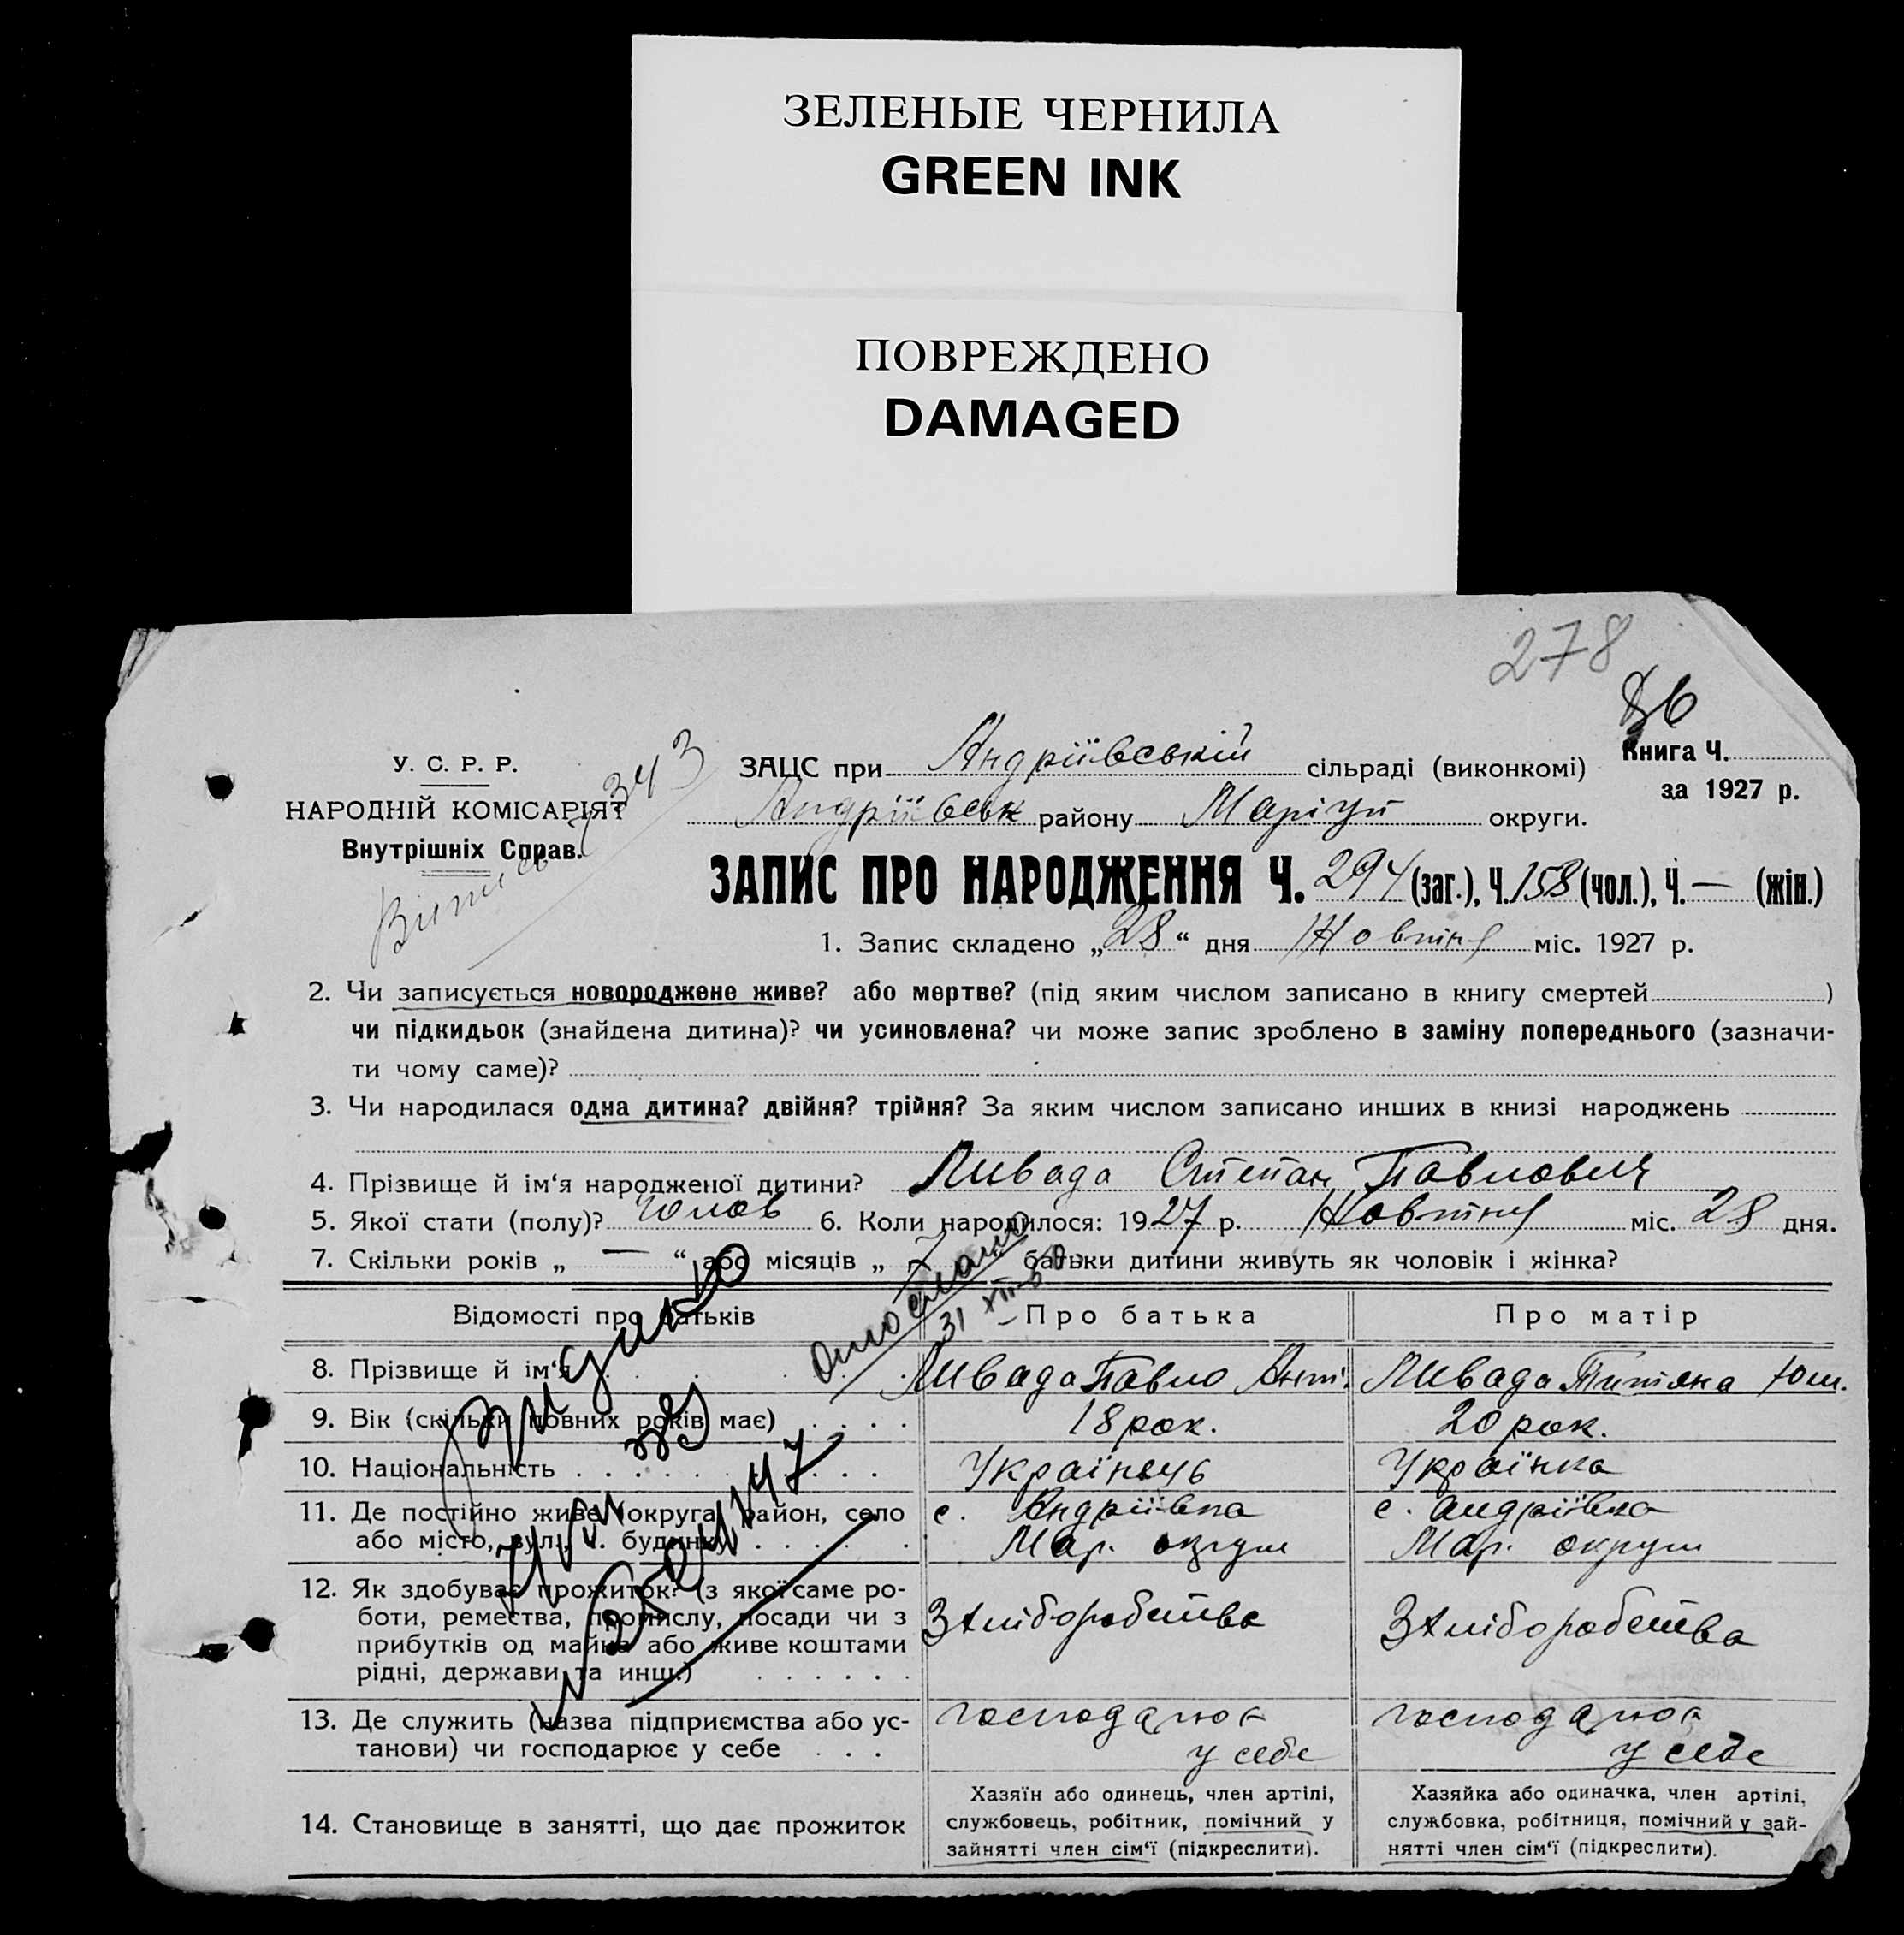 ЗЕЛЕНЫЕ ЧЕРНИЛА
GREEN INK
ПОВРЕЖДЕНО
DAMAGED
278
86
У. С. Р. Р.
НАРОДНІЙ КОМІСАРІЯТ
Внутрішніх Справ.
343
ЗАЦС при Андріївській сільраді (виконкомі)
Книга Ч.
за 1927 р.
Андріївськ району Маріуп округи.
ЗАПИС ПРО НАРОДЖЕННЯ Ч. 294 (заг.), Ч. 158 (чол.), Ч. — (жін.)
1. Запис складено „28“ дня Жовтня міс. 1927 р.
2. Чи записується новороджене живе? або мертве? (під яким числом записано в книгу смертей )
чи підкидьок (знайдена дитина)? чи усиновлена? чи може запис зроблено в заміну попереднього (зазначи-
ти чому саме)?
3. Чи народилася одна дитина? двійня? трійня? За яким числом записано инших в книзі народжень
4. Прізвище й ім‘я народженої дитини? Ливада Степан Павлович
5. Якої стати (полу)? Чолов 6. Коли народилося: 1927 р. Жовтня міс. 28 дня.
7. Скільки років „ — “ або місяців „ 7 батьки дитини живуть як чоловік і жінка?
31 XII
Відомості про батьків
Про батька
Про матір
8. Прізвище й ім‘я
Ливада Павло Ант.
Ливада Титяна
9. Вік (скільки повних років має)
18 рок.
20 рок.
10. Національність
Українець
Українка
11. Де постійно живе (округа, район, село
або місто, вул., ч. будинку)
с. Андріївка
Мар. округи
с. Андріївка
Мар. округи
12. Як здобуває прожиток? (з якої саме ро-
боти, ремества, промислу, посади чи з
прибутків од майна або живе коштами
рідні, держави та инш.)
З хліборобства
З хліборобства
13. Де служить (назва підприємства або ус-
танови) чи господарює у себе
господарює
у себе
господарює
у себе
14. Становище в занятті, що дає прожиток
Хазяїн або одинець, член артілі,
службовець, робітник, помічний у
зайнятті член сім‘ї (підкреслити).
Хазяйка або одиначка, член артілі,
службовка, робітниця, помічний у зай-
нятті член сім‘ї (підкреслити).